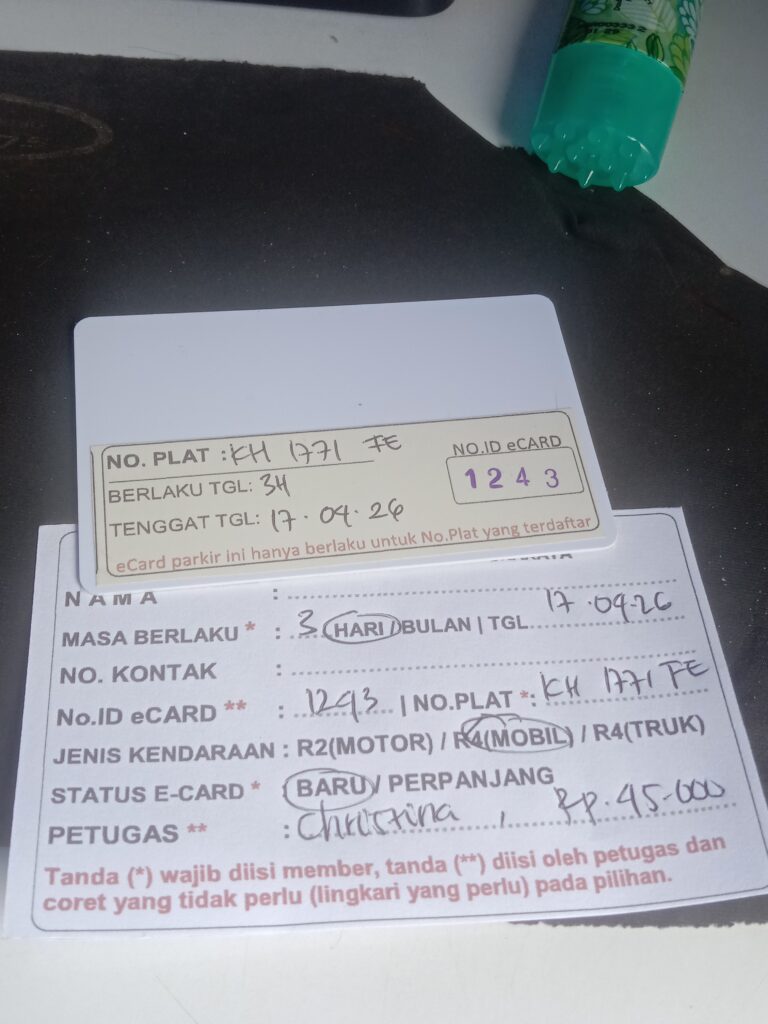 NO. PLAT : KH 1771 FE
NO.ID eCARD
BERLAKU TGL: 3H
1243
TENGGAT TGL: 17.04.26
eCard parkir ini hanya berlaku untuk No.Plat yang terdaftar
NAMA :
MASA BERLAKU * : 3 HARI / BULAN | TGL. 17.04.26
NO. KONTAK :
No.ID eCARD ** : 1243 | NO.PLAT *: KH 1771 FE
JENIS KENDARAAN : R2(MOTOR) / R4(MOBIL) / R4(TRUK)
STATUS E-CARD * (BARU / PERPANJANG
PETUGAS ** : Christina , Rp. 45.000
Tanda (*) wajib diisi member, tanda (**) diisi oleh petugas dan
coret yang tidak perlu (lingkari yang perlu) pada pilihan.